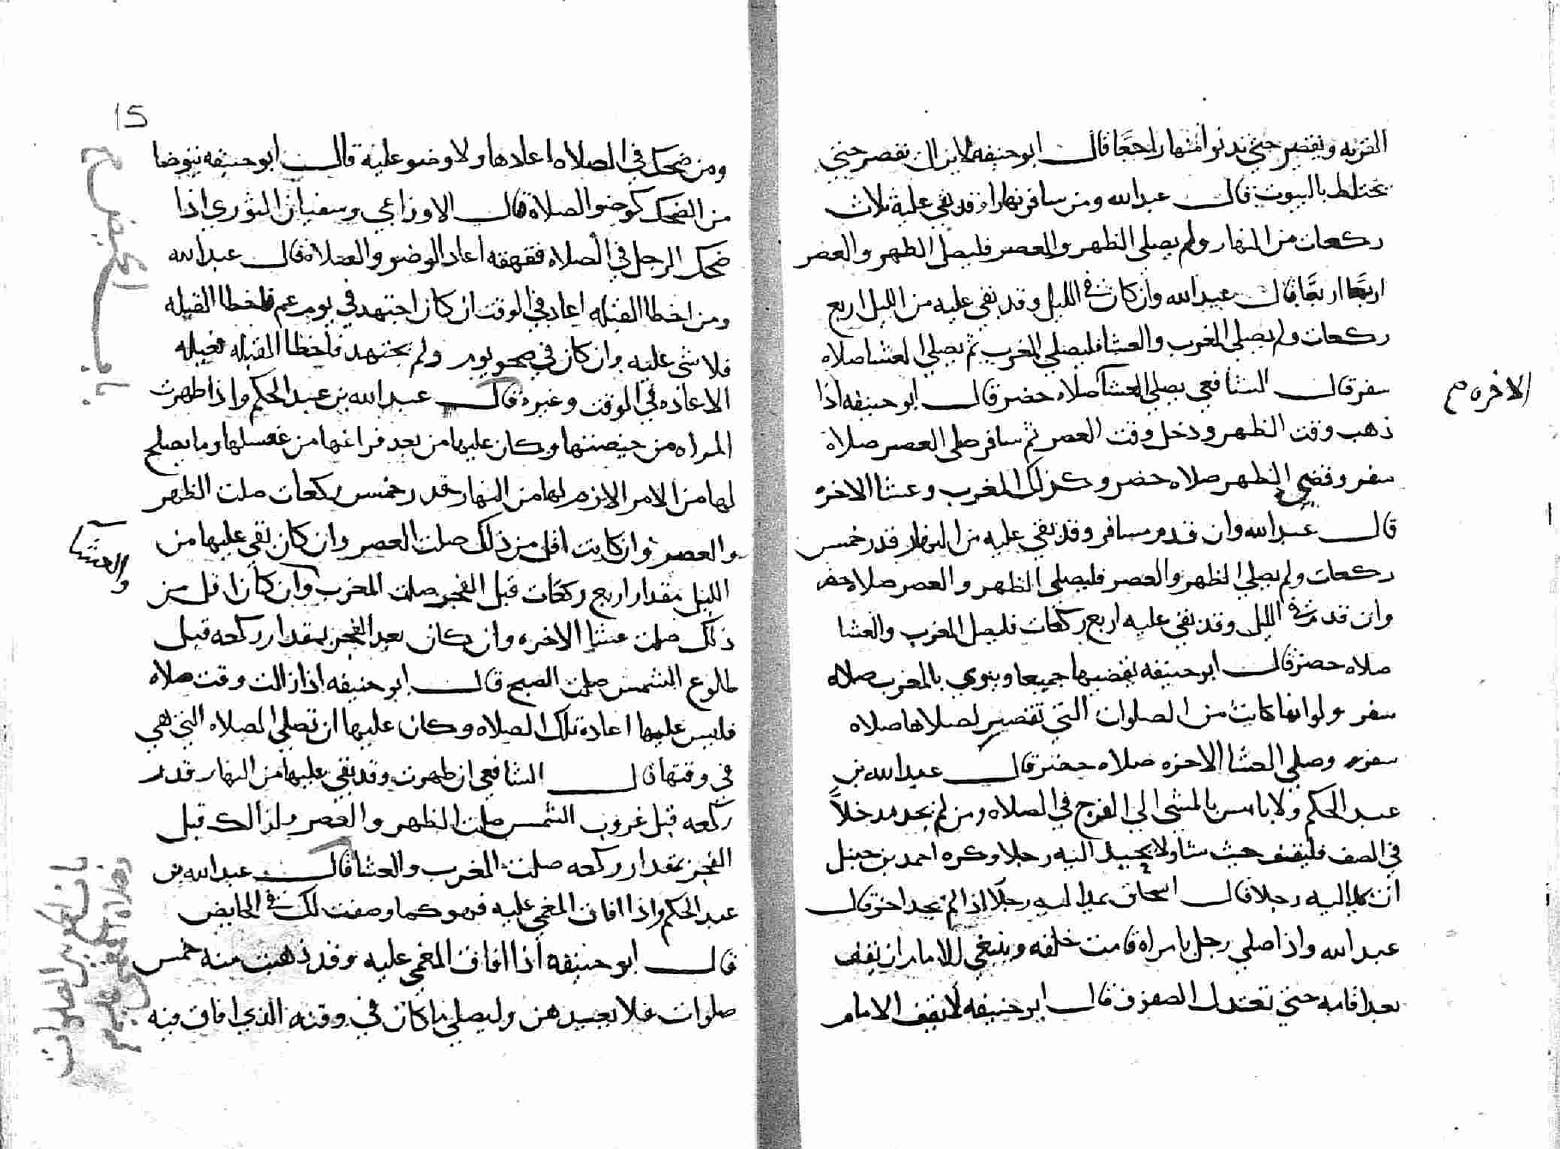 القريه ويقصر حتي يدنو منها راجعًا قال ابو حنيفه لا يزال يقصر حتي
يختلط بالبيوت قال عبدالله ومن سافر نهارا وقد بقي عليه ثلاث
ركعات من النهار ولم يصلي الظهر والعصر فليصل الظهر والعصر
اربعًا اربعًا قال عبدالله وان كان في الليل وقد بقي عليه من الليل اربع
ركعات ولم يصلي المغرب والعشا فليصلي المغرب ثم يصلي العشا صلاه
الاخره م
سفر قال الشافعي يصلي العشا صلاه حضر قال ابو حنيفه اذا
ذهب وقت الظهر ودخل وقت العصر ثم سافر صلي العصر صلاة
سفر وقضي الظهر صلاه حضر وكذلك المغرب وعشا الاخره
قال عبدالله وان قدم مسافر وقد بقي عليه من النهار قدر خمس
ركعات ولم يصلي الظهر والعصر فليصلي الظهر والعصر صلاه حضر
وان قدم في الليل وقد بقي عليه اربع ركعات فليصل المغرب والعشا
صلاه حضر قال ابو حنيفه يقضيها جميعا وينوي بالمغرب صلاه
سفر ولو انها كانت من الصلوات التي تقصر لصلاها صلاه
سفر وصلي العشا الاخره صلاه حضر قال عبدالله بن
عبد الحكم ولا باس بالمشي الي الفرج في الصلاه ومن لم يجد مدخلاً
في الصف فليقف حيث شا ولا يجبذ اليه رجلا وكره احمد بن حنبل
ان يمد اليه رجلا قال اسحاق يمد اليه رجلًا اذا لم يجد احز قال
عبدالله واذا صلي رجل بامراه قامت خلفه وينبغي للامام ان يقف
بعد اقامه حتي تعتدل الصفوف قال ابو حنيفه لا يقف الامام

15
ومن ضحك في الصلاه اعادها ولا وضو عليه قال ابو حنيفه يتوضا
من الضحك كوضو الصلاه قال الاوزاعي وسفيان الثوري اذا
ضحك الرجل في الصلاه فقهقه اعاد الوضو والصلاه قال عبدالله
ومن اخطا القبله اعاد في الوقت ان كان اجتهد في يوم غيم فاخطا القبله
فلا شي عليه وان كان في صحو يوم ولم يجتهد فاخطا القبله فعليه
الاعاده في الوقت وغيره قال عبدالله بن عبد الحكم واذا طهرت
المراه من حيضتها وكان عليها من بعد فراغها من غسلها وما يصلح
لها من الامر اللازم لها من النهار قدر خمس ركعات صلت الظهر
والعصر وان كانت اقل من ذلك صلت العصر وان كان بقي عليها من
الليل مقدار اربع ركعات قبل الفجر صلت المغرب وان كان اقل من
والعشا
ذلك صلت عشا الاخره وان كان بعد الفجر بمقدار ركعه قبل
طلوع الشمس صلت الصبح قال ابو حنيفه اذا زالت وقت صلاه
فليس عليها اعادة تلك الصلاه وكان عليها ان تصلي الصلاه التي هي
في وقتها قال الشافعي ان طهرت وقد بقي عليها من النهار قدر
ركعه قبل غروب الشمس صلت الظهر والعصر وكذالك قبل
الفجر بمقدار ركعه صلت المغرب والعشا قال عبدالله بن
عبد الحكم واذا افاق المغمي عليه فهو كما وصفت لك في الحايض
قال ابو حنيفه اذا افاق المغمي عليه وقد ذهبت منه خمس
صلوات فلا يعيدهن وليصلي ما كان في وقته الذي افاق فيه
باب الحيض